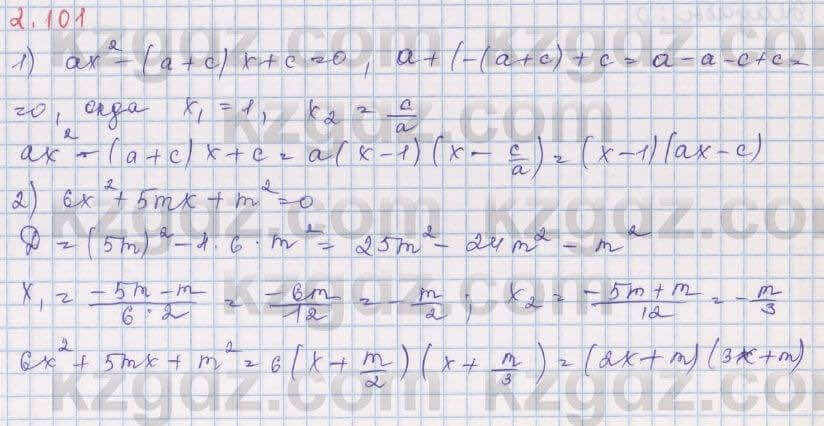 2.101
1) ax² - (a+c)x+c=0, a+(-(a+c)+c=a-a-c+c=
=0, онда x₁=1, x₂=c/a
ax²-(a+c)x+c=a(x-1)(x-c/a)=(x-1)(ax-c)
2) 6x²+5mx+m²=0
D=(5m)²-4·6·m²=25m²-24m²-m²
x₁=(-5m-m)/(6·2)=(-6m)/12=-m/2; x₂=(-5m+m)/12=-m/3
6x²+5mx+m²=6(x+m/2)(x+m/3)=(2x+m)(3x+m)
kzgdz.com
kzgdz.com
kzgdz.com
kzgdz.com
kzgdz.com
kzgdz.com